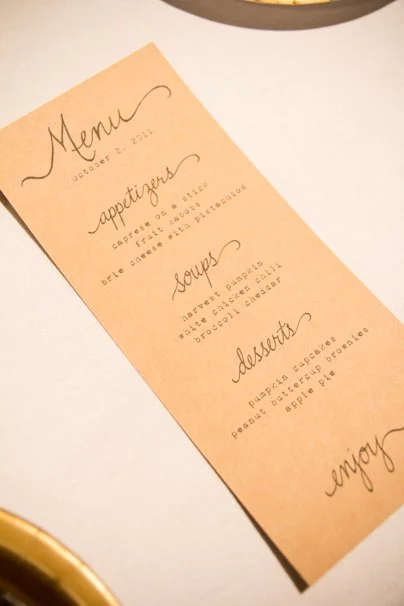 Menu
october 2, 2011
appetizers
caprese on a stick
fruit kabobs
brie cheese with pistachios
soups
harvest pumpkin
white chicken chili
broccoli cheddar
desserts
pumpkin cupcakes
peanut buttercup brownies
apple pie
enjoy